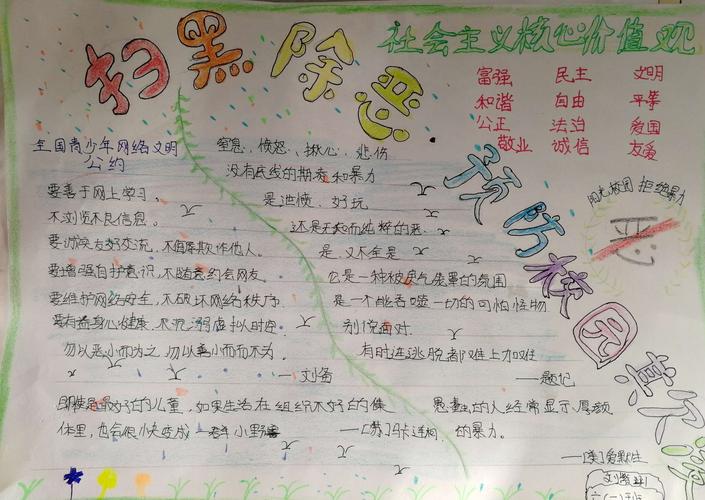 扫黑除恶
社会主义核心价值观
富强 民主 文明
和谐 自由 平等
公正 法治 爱国
敬业 诚信 友爱
预防校园
阳光校园 拒绝暴力
全国青少年网络文明
公约
要善于网上学习
不浏览不良信息。
要诚实友好交流,不侮辱欺诈他人。
要增强自护意识,不随意约会网友。
要维护网络安全,不破坏网络秩序
要有益身心健康,不沉溺虚拟时空
勿以恶小而为之,勿以善小而不为。
——刘备
窒息、愤怒、揪心、悲伤
没有底线的期凌和暴力
是泄愤、好玩
还是无知而纯粹的恶
是,又不全是
它是一种被戾气笼罩的氛围
是一个能吞噬一切的可怕怪物
别说面对
有时连逃脱都难上加难
——题记
即使是最好的儿童,如果生活在组织不好的集
体里,也会很快变成一群小野兽
——[苏]马卡连柯
愚蠢的人经常显示愚顽
的暴力。
——[美]爱默生
六(一)班